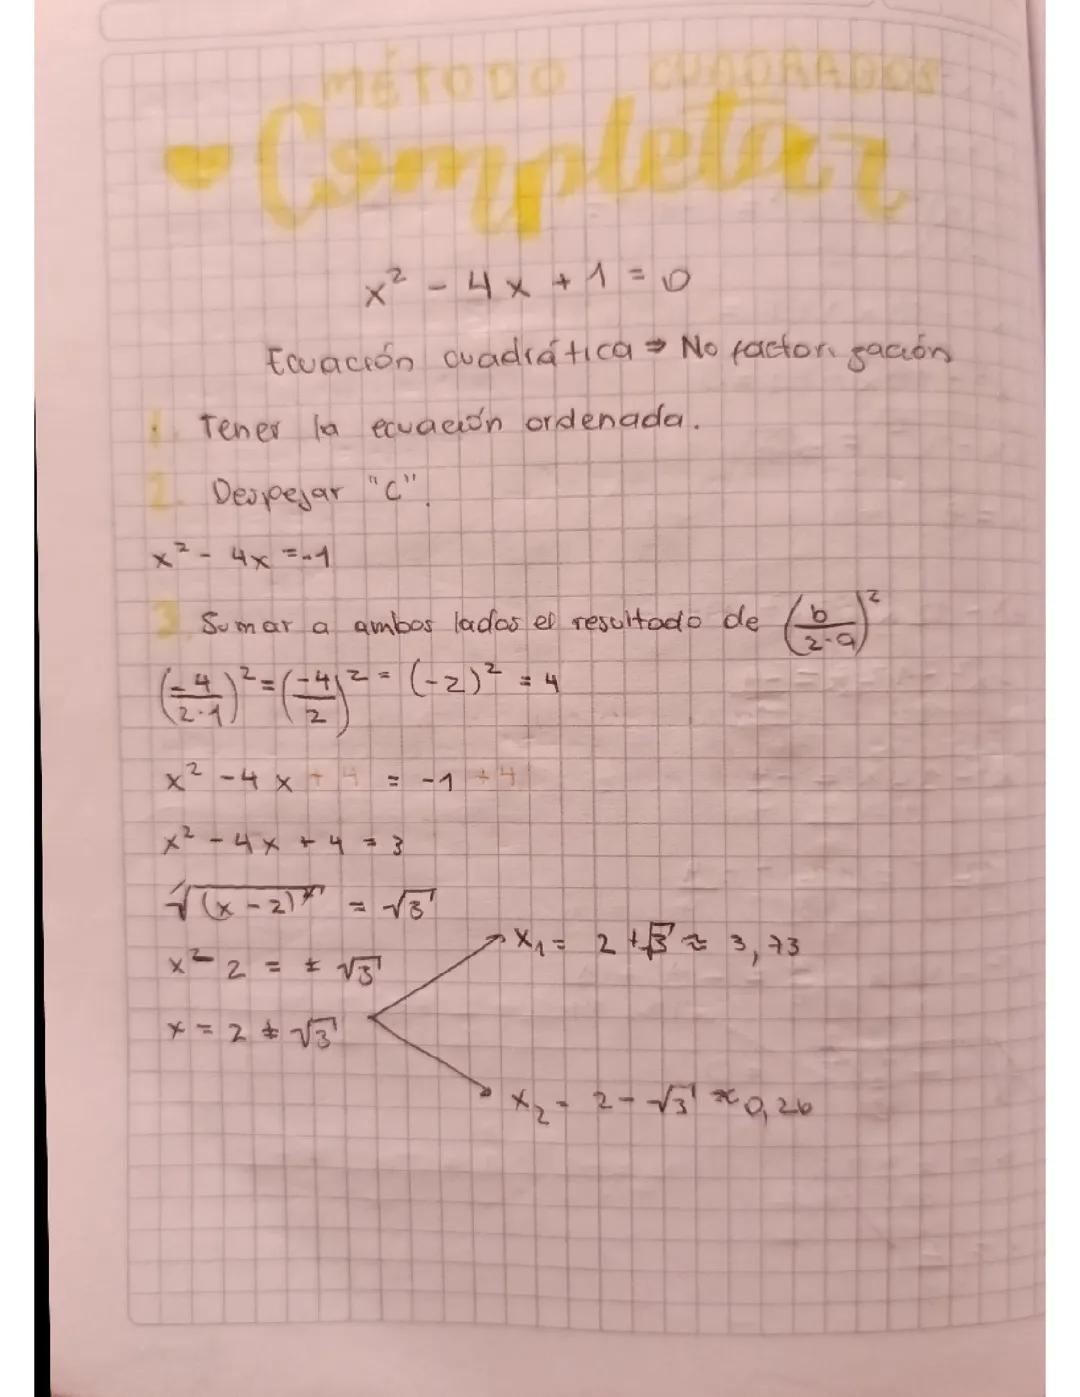 MÉTODO CUADRADOS
Completar
x² - 4x + 1 = 0
Ecuación cuadrática ⇒ No factorización
1. Tener la ecuación ordenada.
2. Despejar "C".
x² - 4x = -1
3. Sumar a ambos lados el resultado de (b/2·a)²
(-4/2·1)² = (-4/2)² = (-2)² = 4
x² - 4x + 4 = -1 + 4
x² - 4x + 4 = 3
√(x - 2)² = √3
x² - 2 = ± √3
x₁ = 2 + √3 ≈ 3,73
x = 2 ± √3
x₂ = 2 - √3 ≈ 0,26